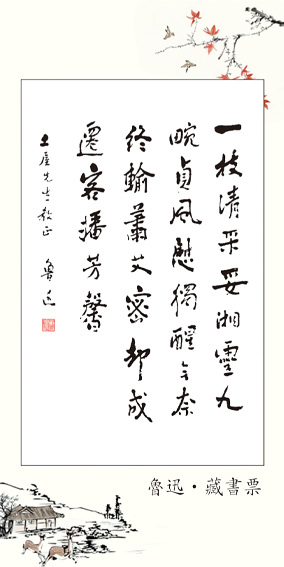 一枝清采妥湘靈九
畹貞風慰獨醒无奈
終輸蕭艾密却成
遷客播芳馨
土屋先生教正 魯迅
魯迅·藏書票